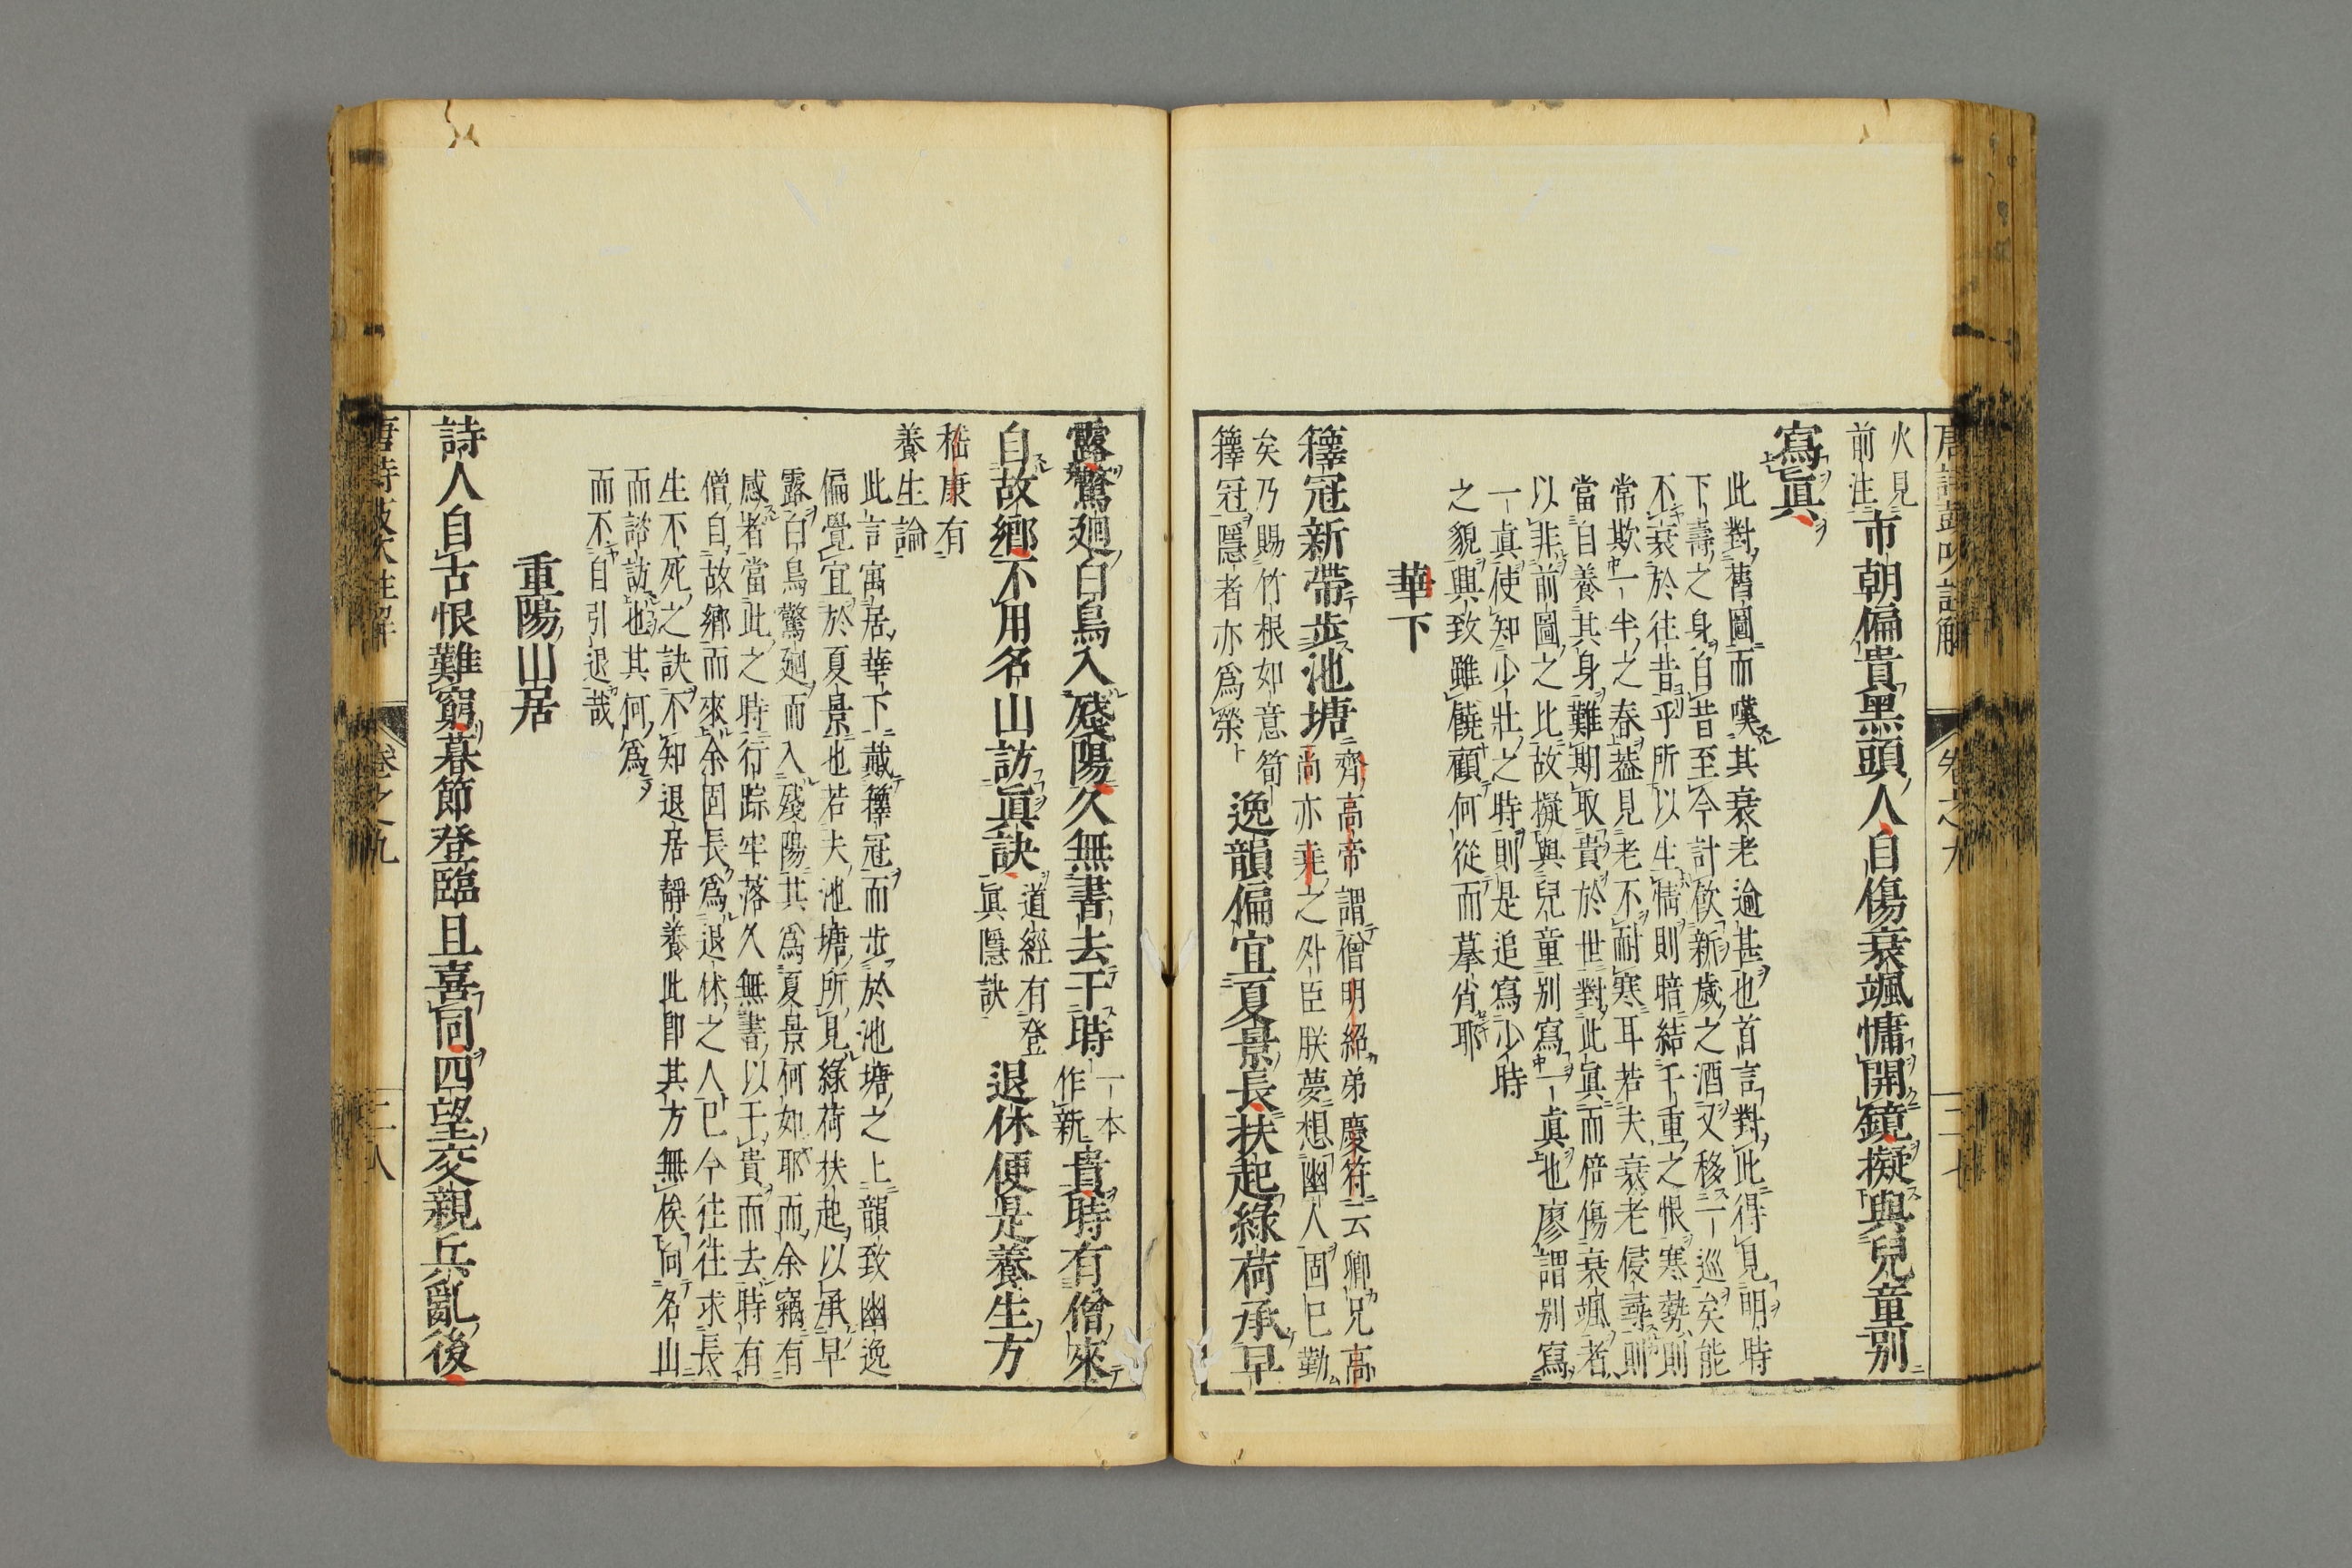 唐詩鼓吹註解
卷之九
三十七
火見
前注
市朝偏貴黑頭人自傷衰颯慵開鏡擬與兒童別
寫眞
此對舊圖而嘆其衰老逾甚也首言對此得見明時
下壽之身自昔至今計飲新歲之酒又移一巡矣能
不衰於往昔乎所以生情則暗結千重之恨寒勢則
常欺一半之春葢見老不耐寒耳若夫衰老侵尋則
當自養其身難期取貴於世對此眞而倍傷衰颯者
以非前圖之比故擬與兒童別寫一眞也廖謂別寫
一眞使知少壯之時則是追寫少時
之貌興致雖饒顧何從而摹肖耶
華下
籜冠新帶步池塘
齊高帝謂僧明紹弟慶符云卿兄高
尚亦堯之外臣朕夢想幽人固已勤
矣乃賜竹根如意筍
籜冠隱者亦爲榮
逸韻偏宜夏景長扶起綠荷承早
露驚廻白鳥入殘陽久無書去干時
一本
作新
貴時有僧來
自故鄉不用名山訪眞訣
道經有登
眞隱訣
退休便是養生方
嵇康有
養生論
此言寓居華下戴籜冠而步於池塘之上韻致幽逸
偏覺宜於夏景也若夫池塘所見綠荷扶起以承早
露白鳥驚廻而入殘陽其爲夏景何如耶而余竊有
感者當此之時行踪牢落久無書以干貴而去時有
僧自故鄉而來余固長爲退休之人已今往往求長
生不死之訣不知退居靜養此卽其方無俟向名山
而諮訪也其何爲
而不自引退哉
重陽山居
詩人自古恨難窮暮節登臨且喜同四望交親兵亂後
卷之九
三十八